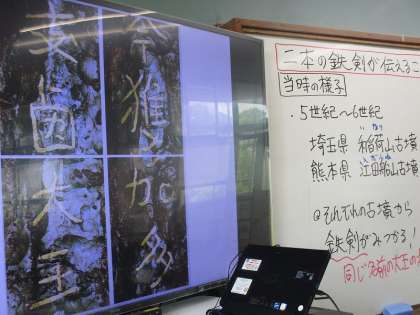 今獲加多
支鹵大王
二本の鉄剣が伝えるこ
当時の様子
・5世紀～6世紀
埼玉県 稲荷山古墳
熊本県 江田船山古墳
◎それぞれの古墳から
鉄剣がみつかる！
同じ名前の大王の